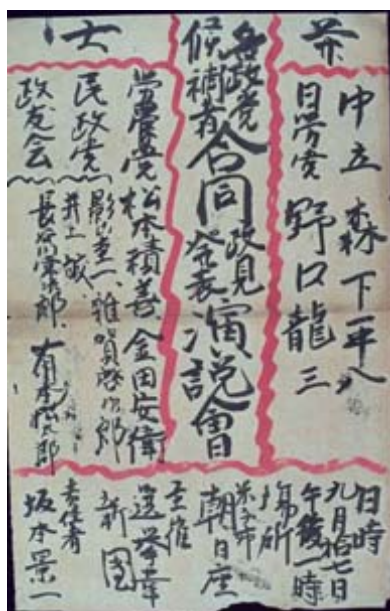 弁士
中立 森下
日労党 野口龍三
各政党
候補者
合同政見
発表演説會
労農党 松本積善 金田安衛
民政党 圭一、雑賀啓次郎
井上誠、
政友会 長谷川 郎、有本 郎
日時
九月拾七日
午後一時
場所
米子市
朝日座
主催
選挙革
新團
責任者
坂本景一